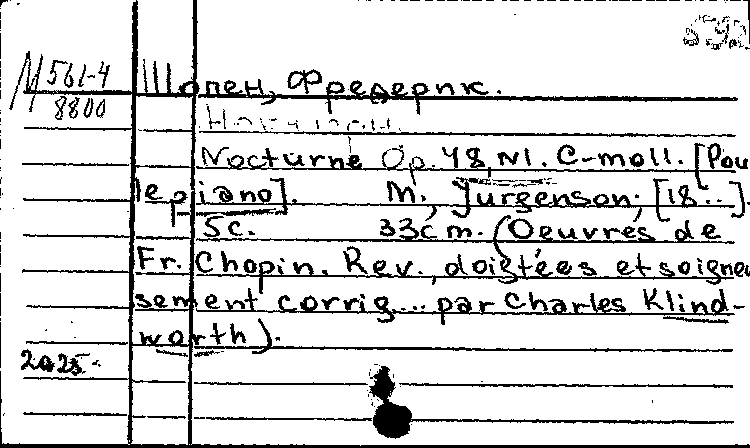 М 561-4
8800
Шопен, Фредерик.
Nocturne Op. 48, N1. C-moll. [Pou
le piano]. M., Jurgenson, [18..].
5c. 33cm. (Oeuvres de
Fr. Chopin. Rev., doigtées et soigneu
sement corrig... par Charles Klind-
worth).
2025.